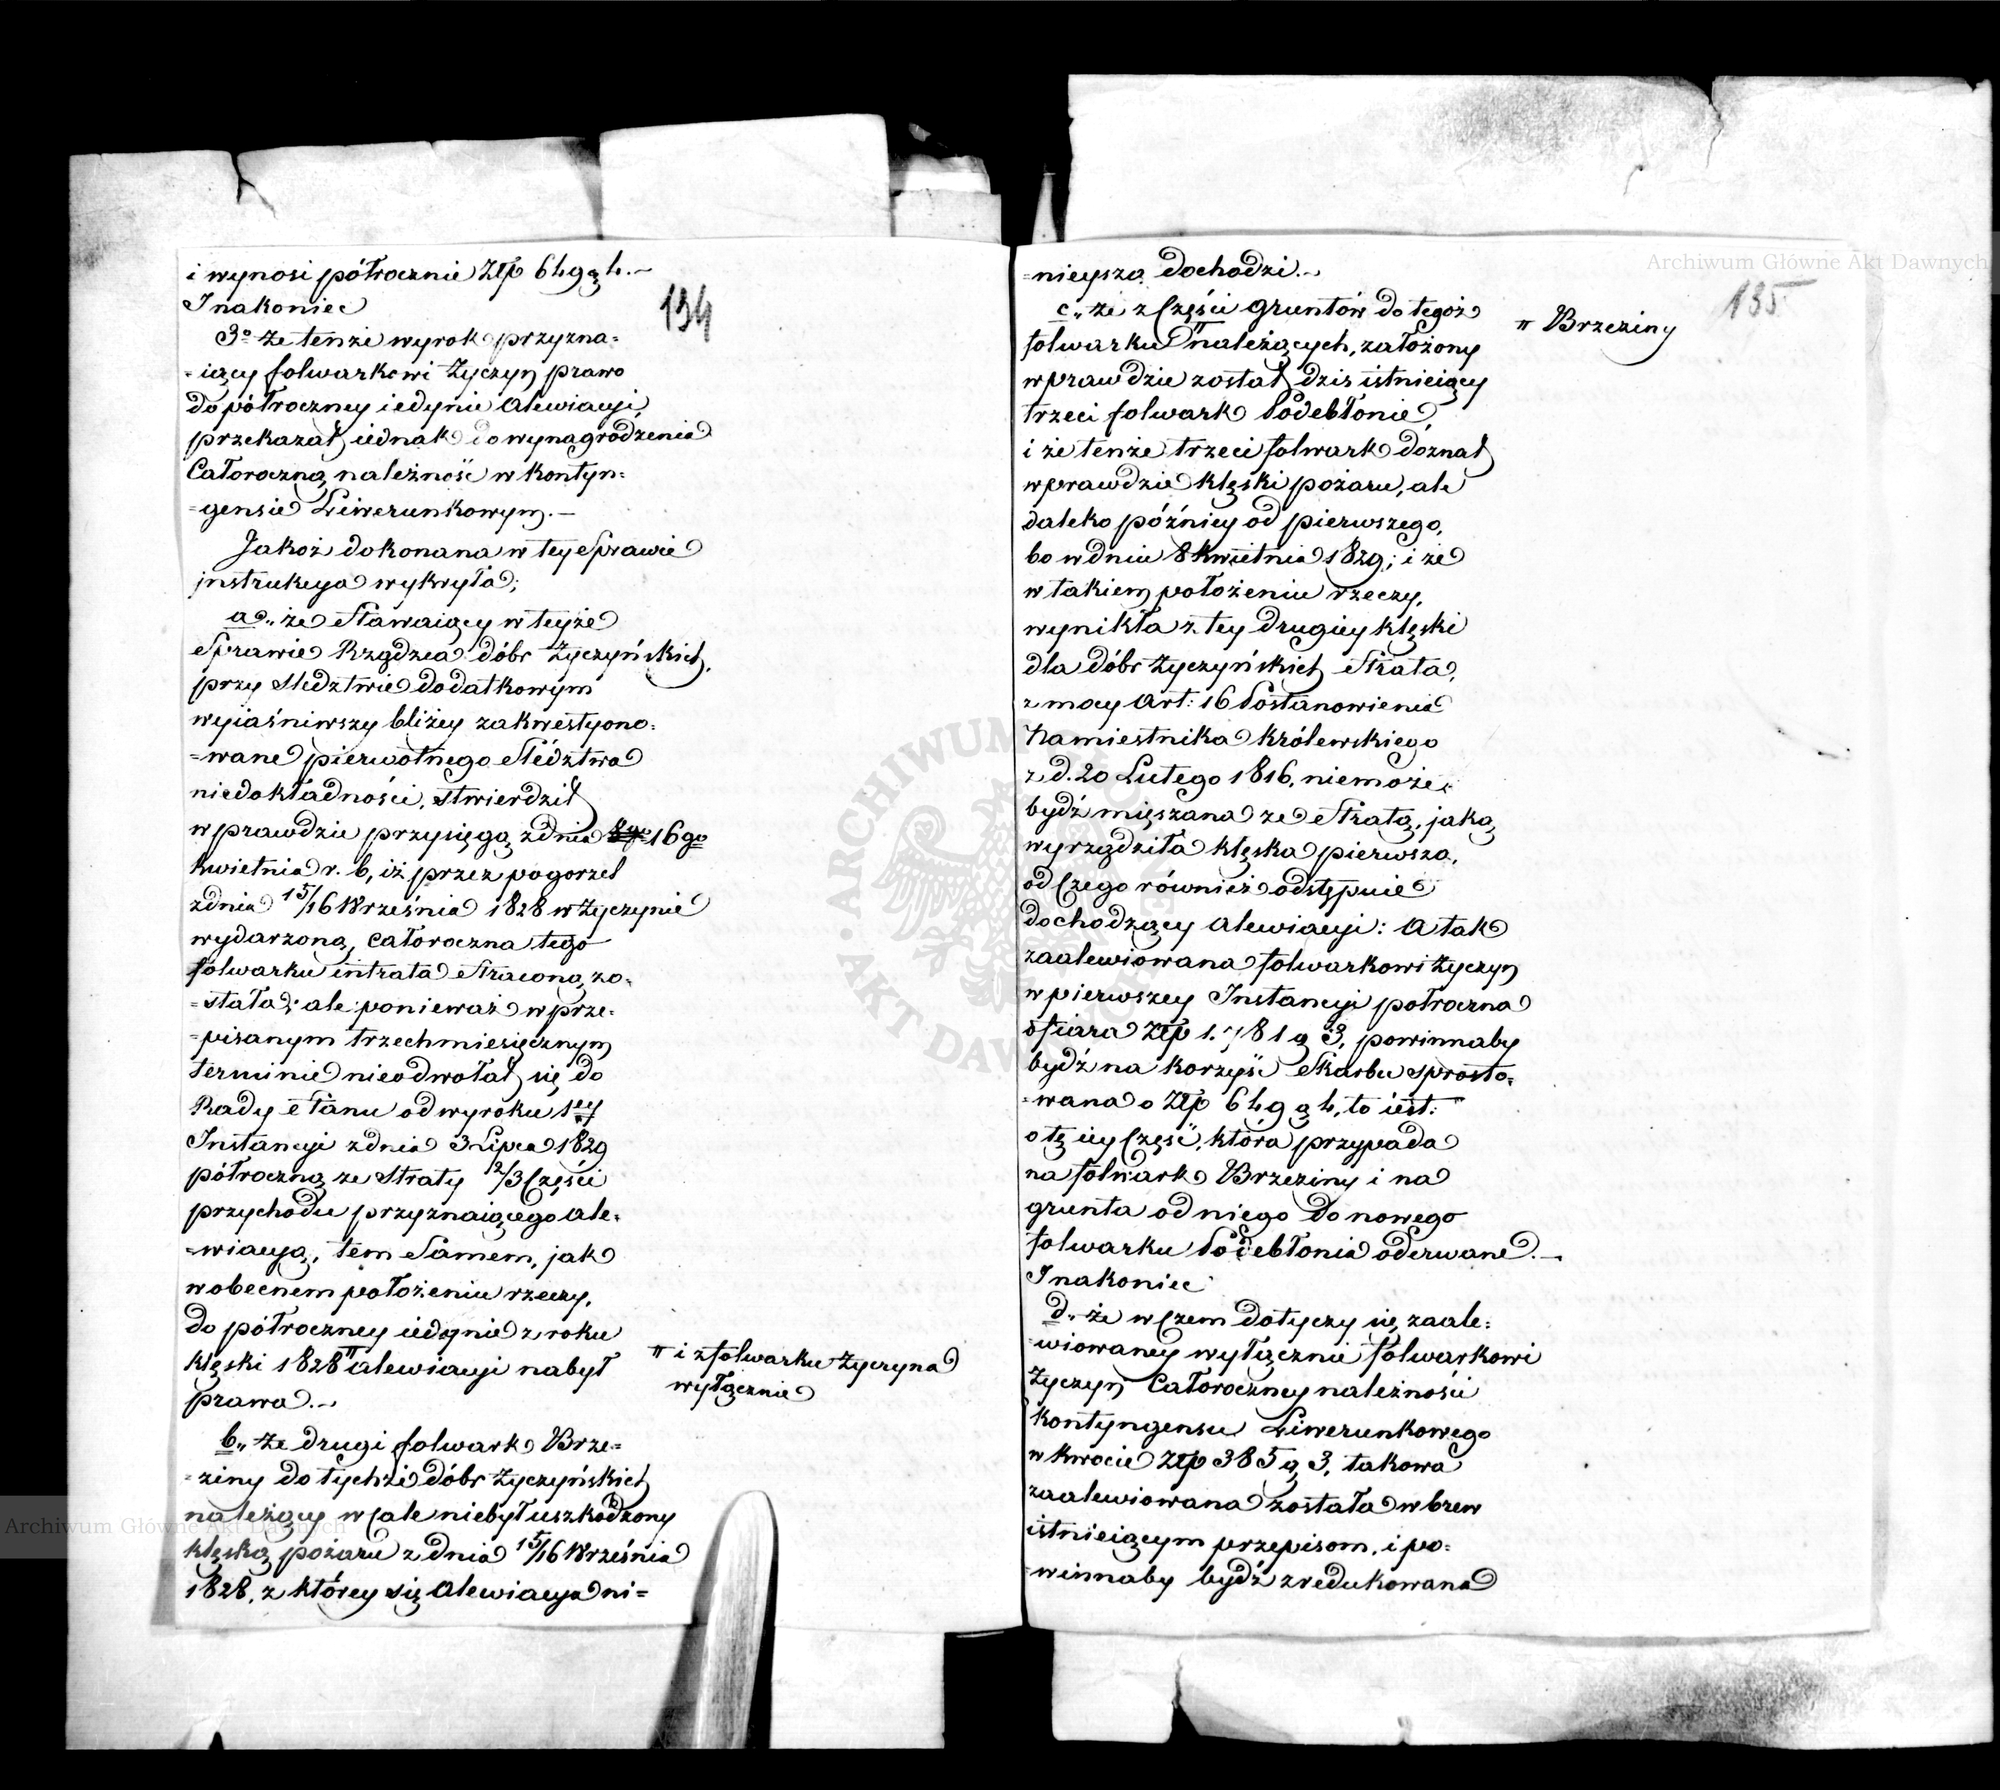 134
i wynosi półrocznie Złp 649 g 4.—
Inakoniec
3º że tenże wyrok przyzna=
=iący folwarkowi Życzyn prawo
do półroczney iedynie alewiacyi,
przekazał iednak do wynagrodzenia
Całoroczną należność w kontyn=
=gensie Liwerunkowym.—
Jakoż dokonana w tey Sprawie
instrukcya wykryła;
a„ że Stawaiący w teyże
Sprawie Rządzca dóbr Życzyńskich,
przy Sledztwie dodatkowym
wyiaśniwszy bliżey zakwestyono=
=wane pierwotnego Sledztwa
niedokładności, stwierdził
wprawdzie przysięgą zdnia 16go
kwietnia r. b, iż przez pogorzel
zdnia 15/16 Września 1828 w Życzynie
wydarzoną, całoroczna tego
folwarku intrata Straconą zo=
=stała; ale ponieważ w prze=
=pisanym trzechmiesięcznym
terminie nieodwołał się do
Rady Stanu od wyroku 1ey
Instancyi zdnia 3 Lipca 1829
półroczną ze Straty 2/3 Części
przychodu przyznaiącego ale=
=wiacyą, tem Samem, jak
w obecnem położeniu rzeczy,
do półroczney iedynie z roku
klęski 1828 π alewiacyi nabył
prawa.—
π i z folwarku Życzyna
wyłącznie
b„ Że drugi folwark Brze=
=ziny do tychże dóbr Życzyńskich
należący wcale niebył uszkodzony
klęską pożaru zdnia 15/16 Września
1828, z którey się alewiacya ni=
135
=nieysza dochodzi.—
c„ że z Części gruntów do tegoż
folwarku π należących, założony
wprawdzie został dziś istnieiący
trzeci folwark Podebłonie,
i że tenże trzeci folwark doznał
wprawdzie klęski pożaru, ale
daleko późniey od pierwszego,
bo w dniu 8 kwietnia 1829; i że
w takiem położeniu rzeczy,
wynikła z tey drugiey klęski
dla dóbr Życzyńskich Strata,
z mocy Art: 16 Postanowienia
Namiestnika Królewskiego
z d. 20 Lutego 1816, niemoże
bydź mięszana ze Stratą, jaką
wyrządziła klęska pierwsza,
od Czego również odstępuie
dochodzący alewiacyi: A tak
zaalewiowana folwarkowi Życzyn
w pierwszey Instancyi półroczna
ofiara Złp 1.781 g 3, powinnaby
bydź na korzyść Skarbu sprosto=
=wana o Złp 649 g 4, to iest:
o tę iey Część, która przypada
na folwark Brzeziny i na
grunta od niego do nowego
folwarku Podebłonia oderwane.—
π Brzeziny
Inakoniec
d„ że w Czem dotyczy się zaale=
=wiowaney wyłącznie folwarkowi
Życzyn Całoroczney należności
kontyngensu Liwerunkowego
w kwocie Złp 385 g 3, takowa
zaalewiowana została wbrew
istnieiącym przepisom, i po=
=winnaby bydź zredukowana
Archiwum Główne Akt Dawnych
Archiwum Główne Akt Dawnych
ARCHIWUM GŁÓWNE AKT DAWNYCH